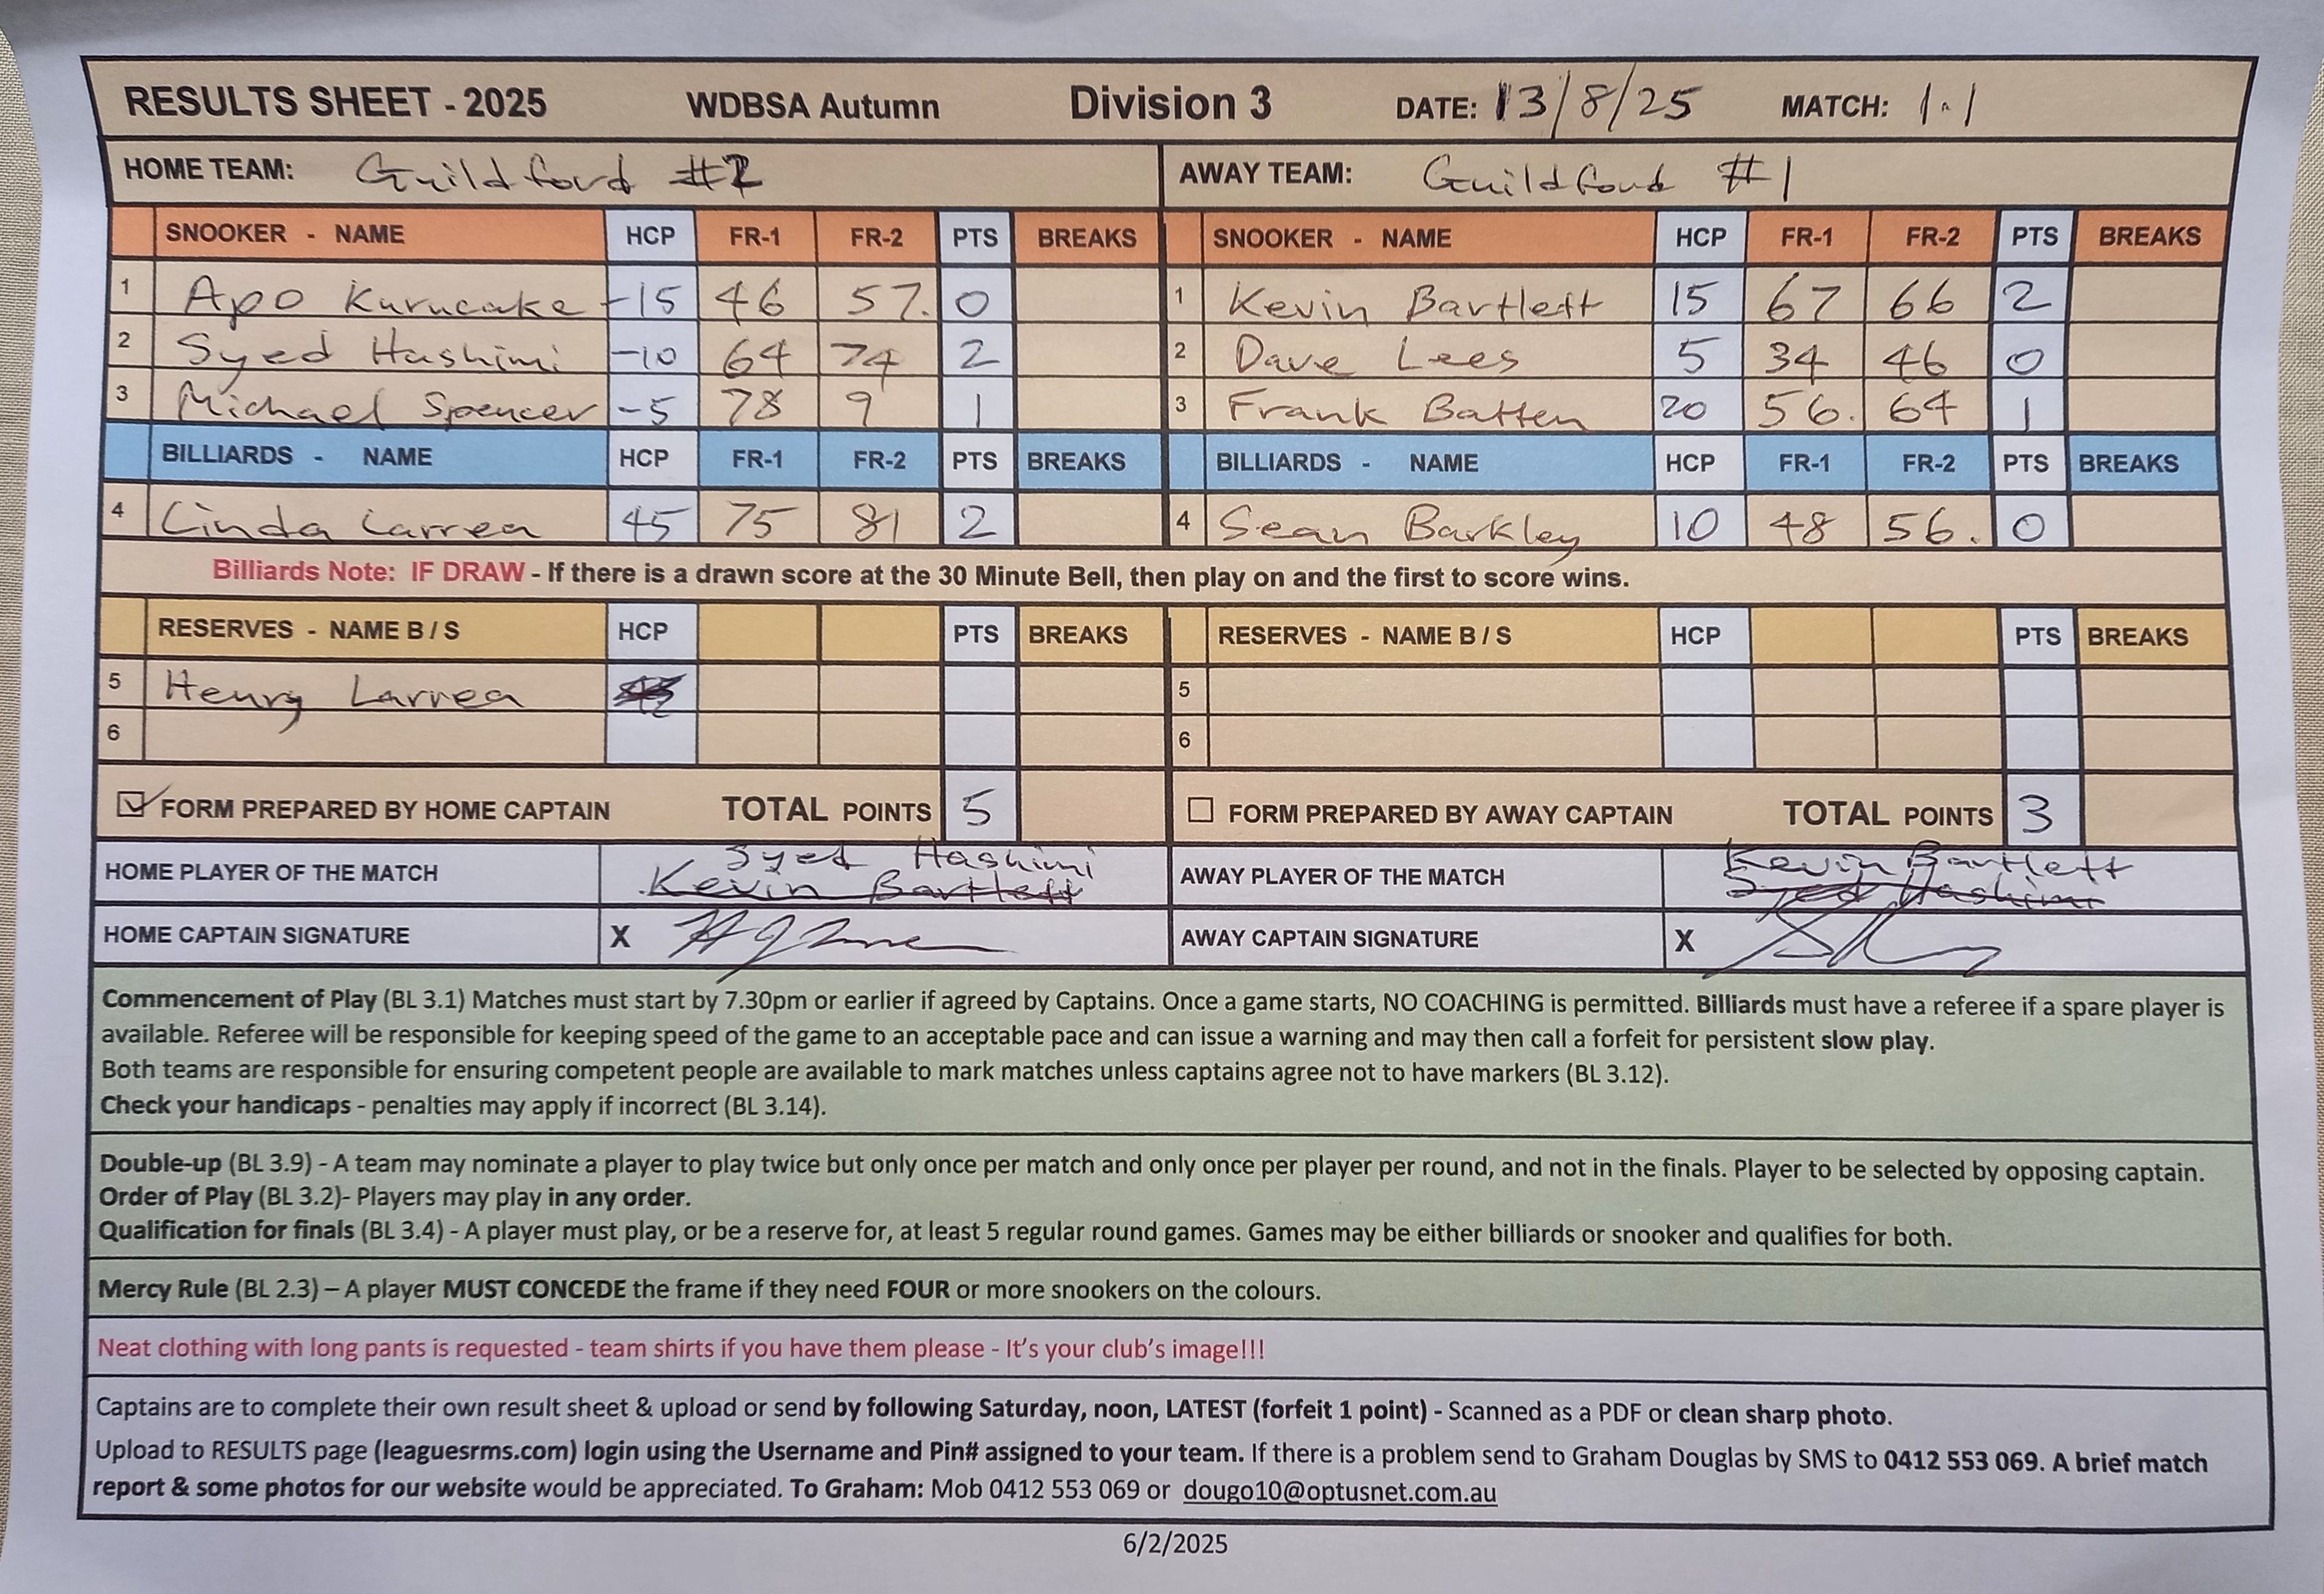 RESULTS SHEET - 2025 WDBSA Autumn Division 3 DATE: 13/8/25 MATCH: 1.1
HOME TEAM: Guildford #2 AWAY TEAM: Guildford #1
SNOOKER - NAME HCP FR-1 FR-2 PTS BREAKS SNOOKER - NAME HCP FR-1 FR-2 PTS BREAKS
1 Apo Kurucake -15 46 57. 0 1 Kevin Bartlett 15 67 66 2
2 Syed Hashimi -10 64 74 2 2 Dave Lees 5 34 46 0
3 Michael Spencer -5 78 9 1 3 Frank Batten 20 56. 64 1
BILLIARDS - NAME HCP FR-1 FR-2 PTS BREAKS BILLIARDS - NAME HCP FR-1 FR-2 PTS BREAKS
4 Linda Larrea 45 75 81 2 4 Sean Barkley 10 48 56. 0
Billiards Note: IF DRAW - If there is a drawn score at the 30 Minute Bell, then play on and the first to score wins.
RESERVES - NAME B / S HCP PTS BREAKS RESERVES - NAME B / S HCP PTS BREAKS
5 Henry Larrea 5
6 6
FORM PREPARED BY HOME CAPTAIN TOTAL POINTS 5 FORM PREPARED BY AWAY CAPTAIN TOTAL POINTS 3
HOME PLAYER OF THE MATCH Syed Hashimi Kevin Bartlett AWAY PLAYER OF THE MATCH Kevin Bartlett Syed Hashimi
HOME CAPTAIN SIGNATURE X AWAY CAPTAIN SIGNATURE X
Commencement of Play (BL 3.1) Matches must start by 7.30pm or earlier if agreed by Captains. Once a game starts, NO COACHING is permitted. Billiards must have a referee if a spare player is
available. Referee will be responsible for keeping speed of the game to an acceptable pace and can issue a warning and may then call a forfeit for persistent slow play.
Both teams are responsible for ensuring competent people are available to mark matches unless captains agree not to have markers (BL 3.12).
Check your handicaps - penalties may apply if incorrect (BL 3.14).
Double-up (BL 3.9) - A team may nominate a player to play twice but only once per match and only once per player per round, and not in the finals. Player to be selected by opposing captain.
Order of Play (BL 3.2)- Players may play in any order.
Qualification for finals (BL 3.4) - A player must play, or be a reserve for, at least 5 regular round games. Games may be either billiards or snooker and qualifies for both.
Mercy Rule (BL 2.3) – A player MUST CONCEDE the frame if they need FOUR or more snookers on the colours.
Neat clothing with long pants is requested - team shirts if you have them please - It's your club's image!!!
Captains are to complete their own result sheet & upload or send by following Saturday, noon, LATEST (forfeit 1 point) - Scanned as a PDF or clean sharp photo.
Upload to RESULTS page (leaguesrms.com) login using the Username and Pin# assigned to your team. If there is a problem send to Graham Douglas by SMS to 0412 553 069. A brief match
report & some photos for our website would be appreciated. To Graham: Mob 0412 553 069 or dougo10@optusnet.com.au
6/2/2025